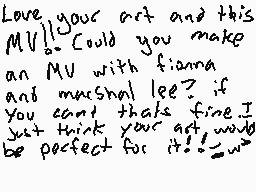 Love your art and this
MV!! Could you make
an MV with fionna
and marshal lee? if
you cant thats fine I
just think your art would
be perfect for it!! =w=